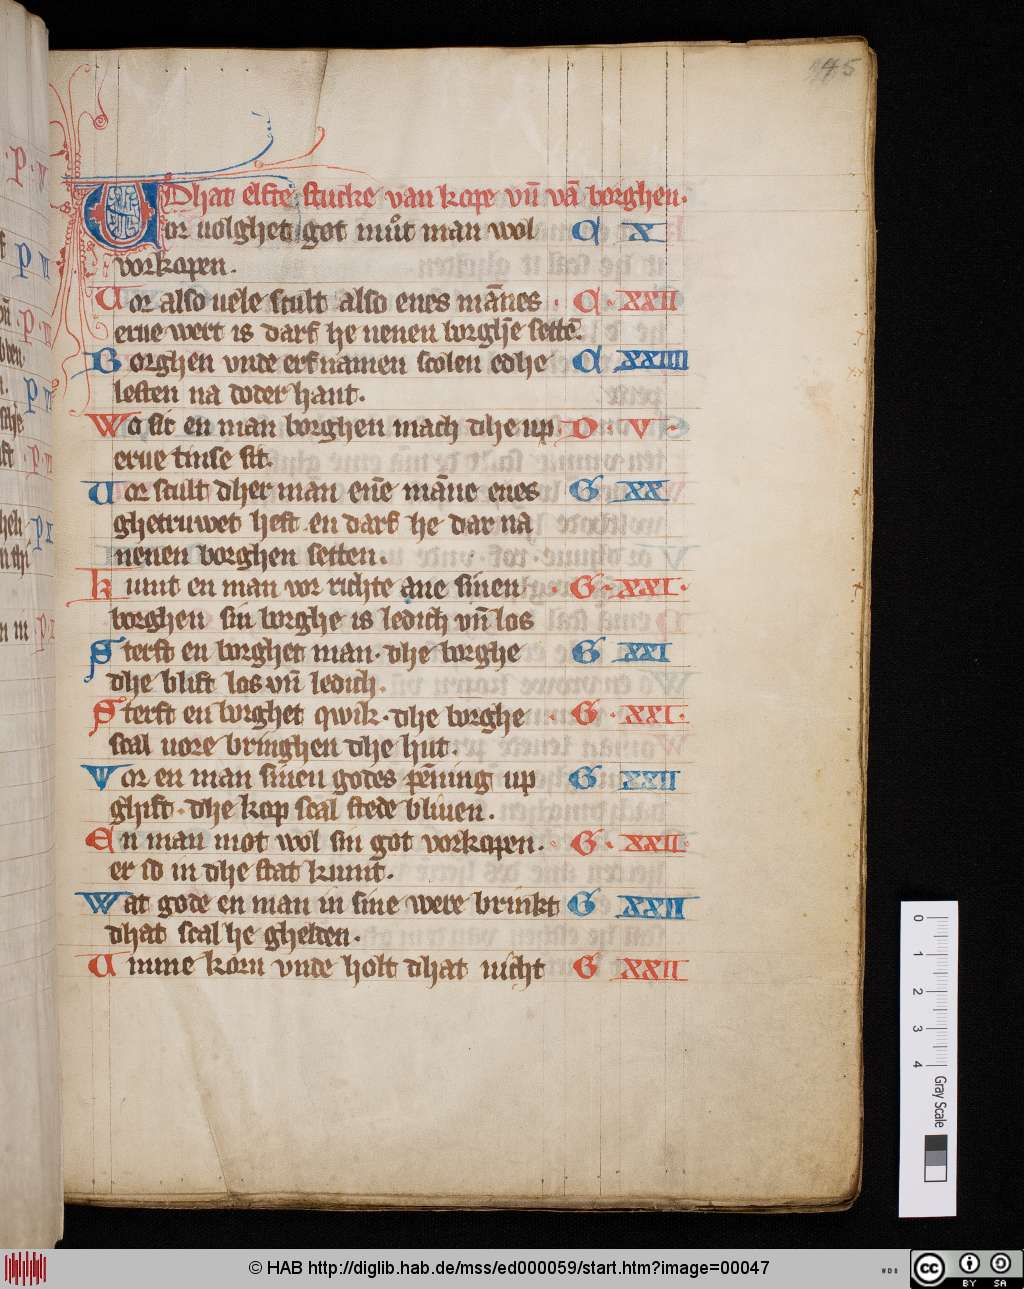 45
Dhat elfte stucke van kope vn̄ vā borghen.
Uor uolghet got můt man wol C X
vorkopen.
Uor also uele scult also enes mānes C XXII
erue wert is darf he nenen borghē settē.
Borghen vnde erfnamen scolen edhe C XXIIII
lesten na doder hant.
Wo sic en man borghen mach dhe up D V
erue tinse sit.
Uor scult dher man enē māne enes G XX
ghetruwet heft en darf he dar na
nenen borghen setten.
Kumt en man vor richte ane sinen G XXI
borghen sin borghe is ledich vn̄ los
Sterft en borghet man. dhe borghe G XXI
dhe blift los vn̄ ledich.
Sterft en borghet qwik. dhe borghe G XXI
scal uore bringhen dhe hut.
Vor en man sinen godes pēning up G XXII
ghift. dhe kop scal stede bliuen.
En man mot wol sin got vorkopen. G XXII
er id in dhe stat kumt.
Wat gode en man in sine were brinkt G XXII
dhat scal he ghelden.
Umme korn vnde holt dhat nicht G XXII
0
1
2
3
4
Gray Scale
© HAB http://diglib.hab.de/mss/ed000059/start.htm?image=00047
cc BY SA